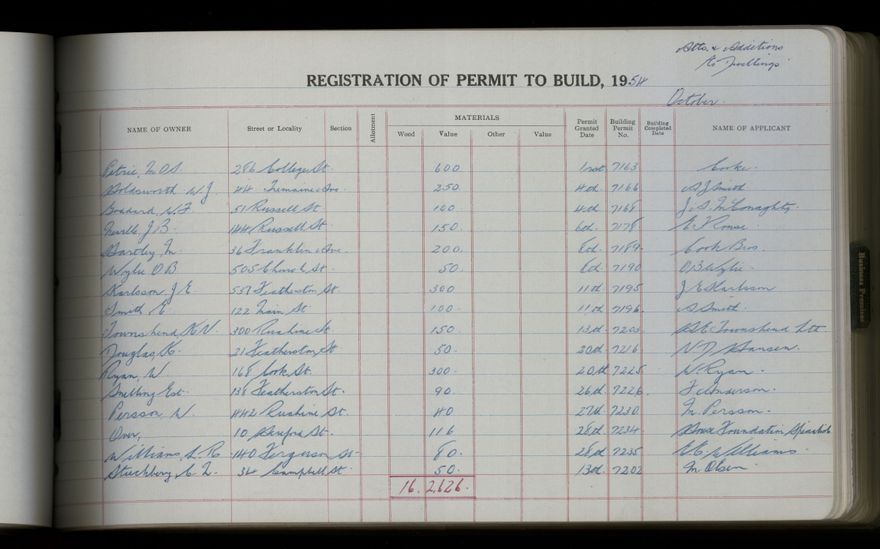 Alts. & Additions
to Dwellings
REGISTRATION OF PERMIT TO BUILD, 1954
October.
NAME OF OWNER Street or Locality Section Allotment MATERIALS Wood Value Other Value Permit Granted Date Building Permit No. Building Completed Date NAME OF APPLICANT
Petrie, 286 College St. 600 1st 7163 Cooke.
Holdsworth W. J. 44 Tremaine Ave. 250. 4th 7166 A J Smith
Goddard, 51 Russell St. 100. 4th 7168 J. S. McConaghty.
Nevill, J. B. 144 Russell St. 150. 6th. 7178 E. Rouse
Hartley, M 36 Franklin Ave. 200. 8th 7189. Cook Bros.
Wylie O B 505 Church St. 50. 8th 7190 O B Wylie.
Karlsson, J. E 557 Featherston St. 300 11th 7195 J E Karlsson
Smith E. 122 Main St. 100. 11th 7196. Smith.
Townshend, 300 Ruahine St. 150. 13th 7203 Townshend Ltd
Douglas, K. 21 Featherston St 50. 20th 7216 Hansen.
Ryan, W. 168 Cook St. 300. 20th 7225 W. Ryan.
Snelling Est. 138 Featherston St. 90. 26th 7226
Persson, W. 442 Ruahine St. 40 27th 7230. Persson.
10 St. 116 28th 7234. Foundation
Williams, L. R 140 Ferguson St. 80. 28th 7235 Williams.
34 Campbell St. 50. 13th. 7202 M. Olsen
16. 2626.
Business Premises